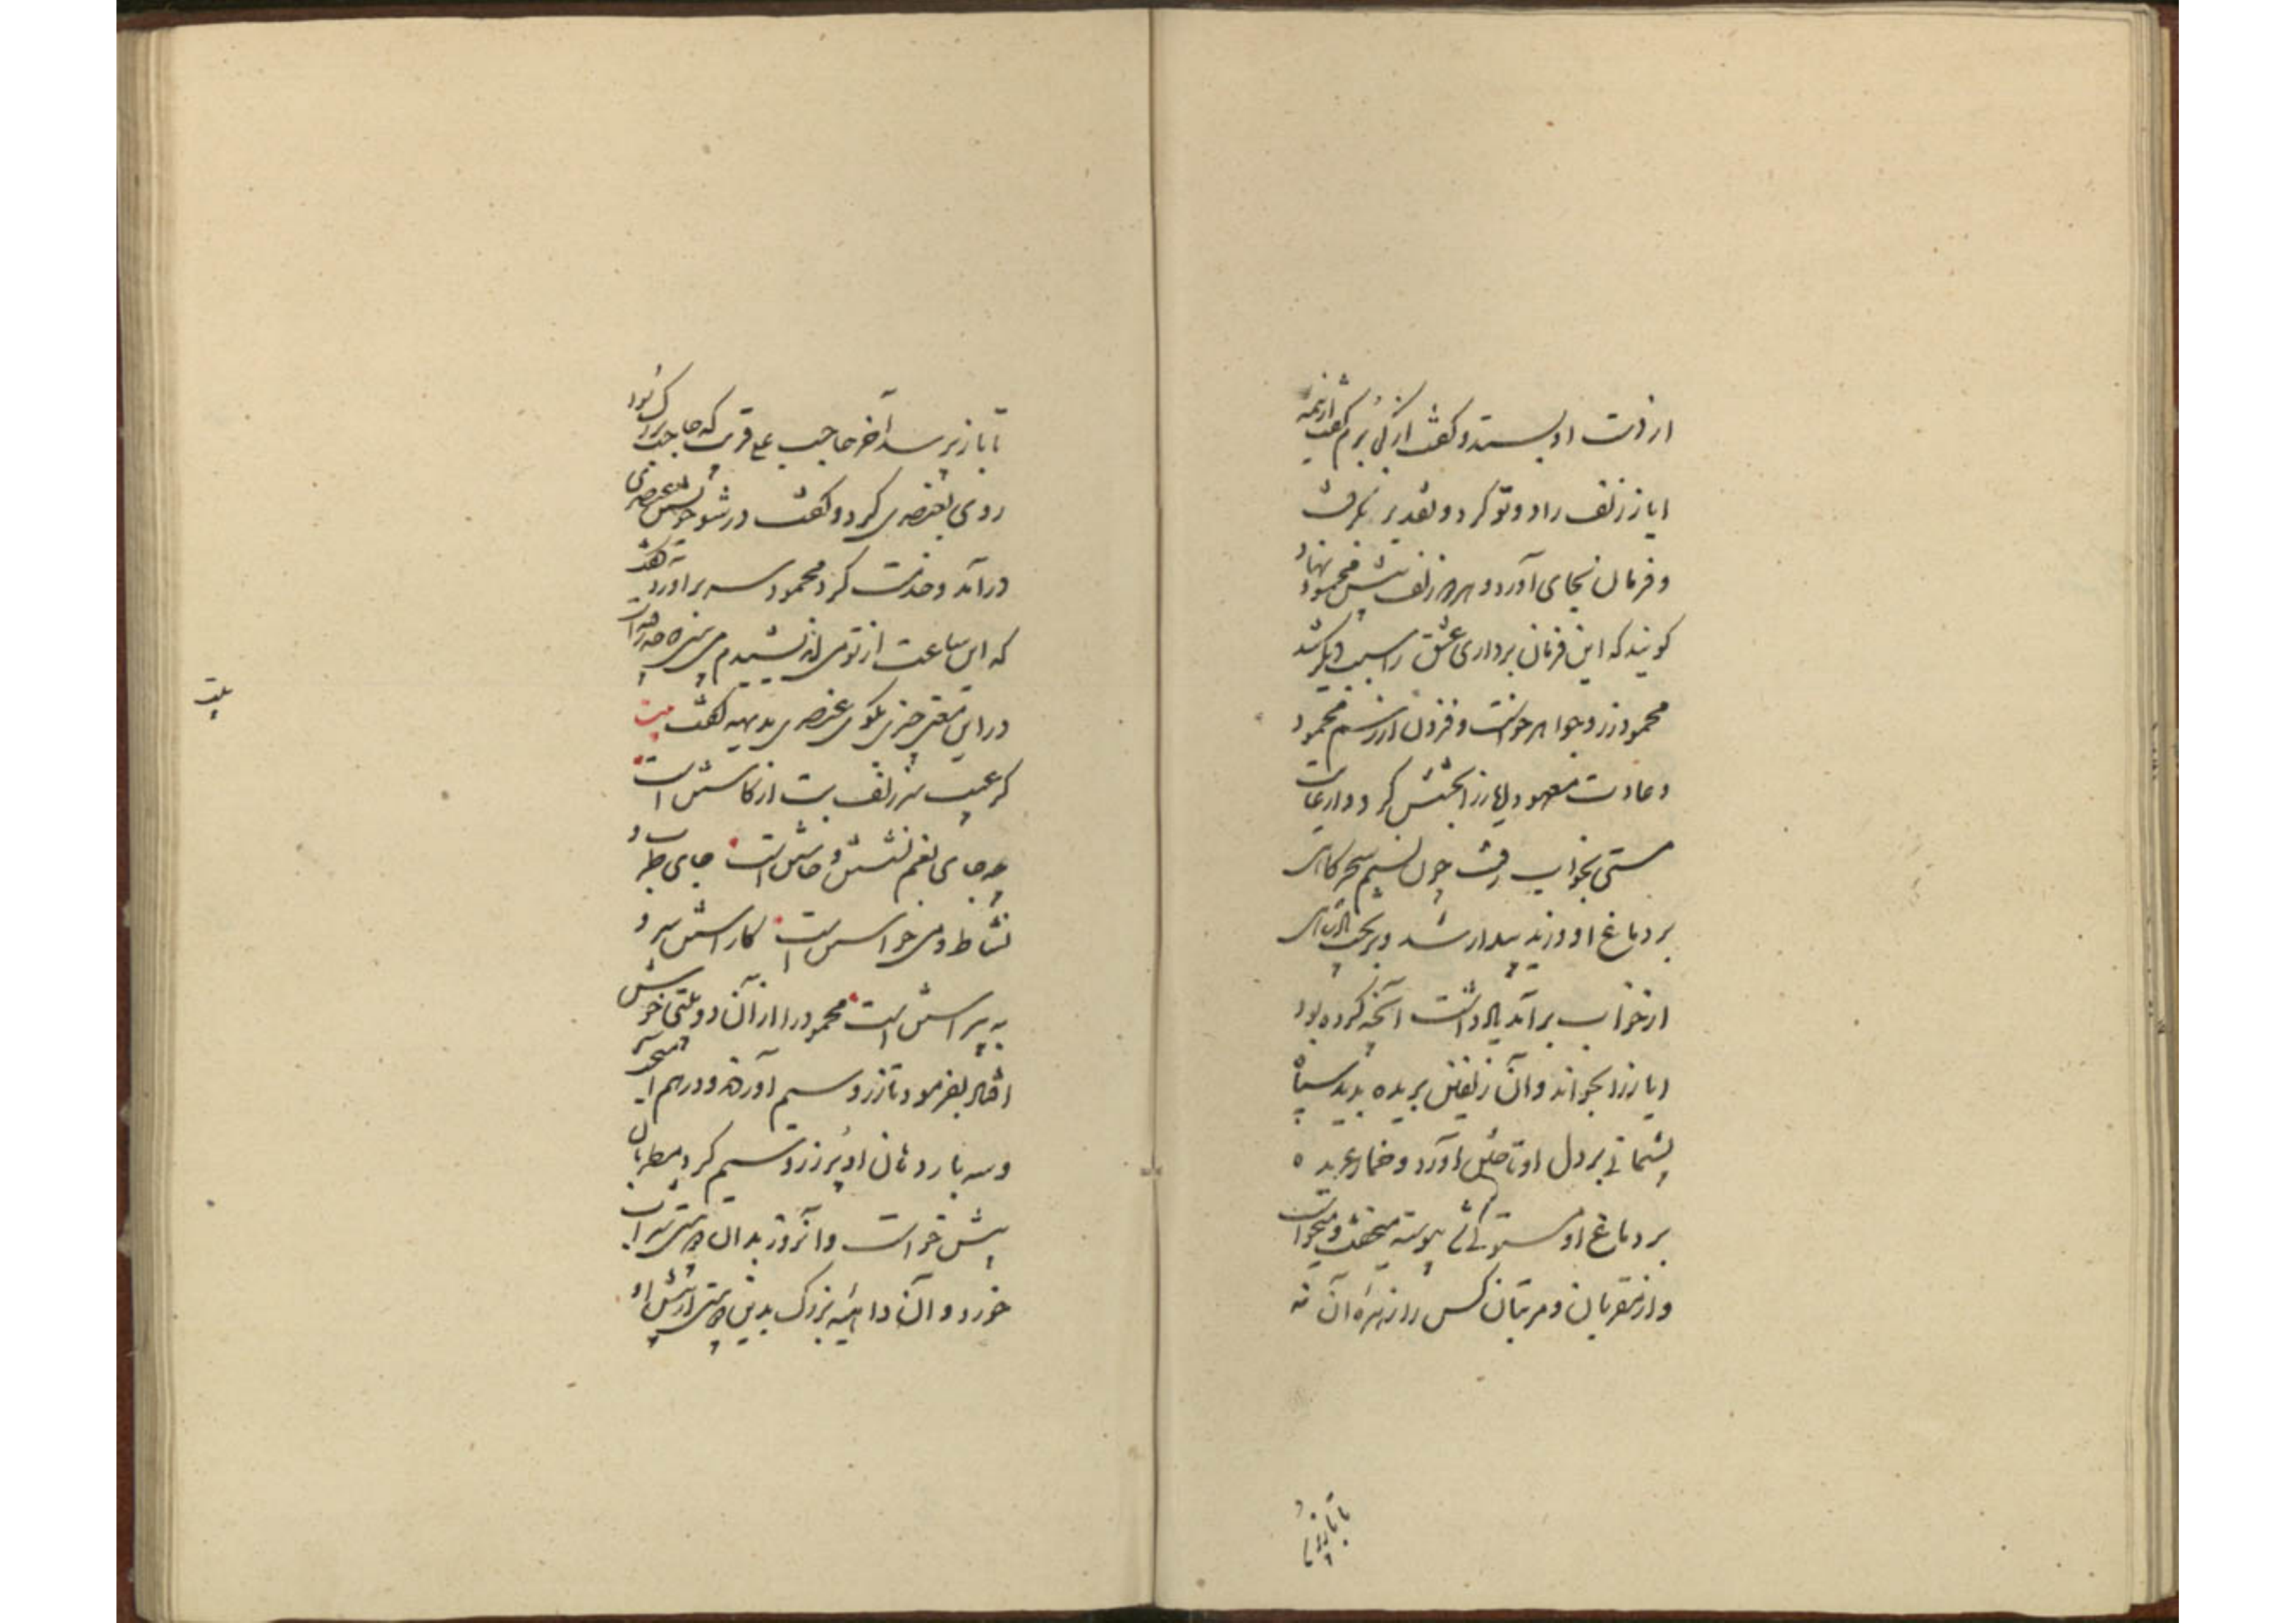 از دست او بستد و گفت از کجا برم گفت از نیمه
ایاز زلف را دو تو کرد و تقدیر بگرفت
و فرمان بجای آورد و هر دو زلف پیش محمود نهاد
گویند که این فرمان برداری عشق را سبب دیگر شد
محمود زر و جواهر خواست و فزون از رسم محمود
و عادت معهود ایاز را بخشش کرد و از غایت
مستی بخواب رفت چون نسیم سحرگاهی
بر دماغ او وزید بیدار شد و بر تخت پادشاهی
از خواب برآمد یاد داشت آنچه کرده بود
ایاز را بخواند و آن زلفین بریده بدید سپاه
پشیمانی بر دل او تاختن آورد و خمار عربده
بر دماغ او مستولی گشت میخفت و میخاست
و از مقربان و مرتبان کس را زهره آن نه
تا باز پرسد
تا باز پرسد آخر حاجب علی قریب که حاجب بزرگ بود
روی بعنصری کرد و گفت در شو عنصری
درآمد و خدمت کرد محمود سر برآورد و گفت
که این ساعت از تو می اندیشیدم می بینی که چه افتاده است
در این معنی چیزی بگوی عنصری بدیهه گفت بیت
گر عیب سر زلف بت از کاستن است
چه جای بغم نشستن و خاستن است جای طرب و
نشاط و می خواستن است کاراستن سرو
به پیراستن است محمود را از آن دو بیتی خوش
افتاد بفرمود تا زر و سیم آوردند و در هم آمیختند
و سه بار دهان او پر زر و سیم کرد و مطربان
پیش خواست و آنروز بدان دو بیتی شراب
خورد و آن داهیه بزرگ بدین دو بیتی از پیش او
بیت